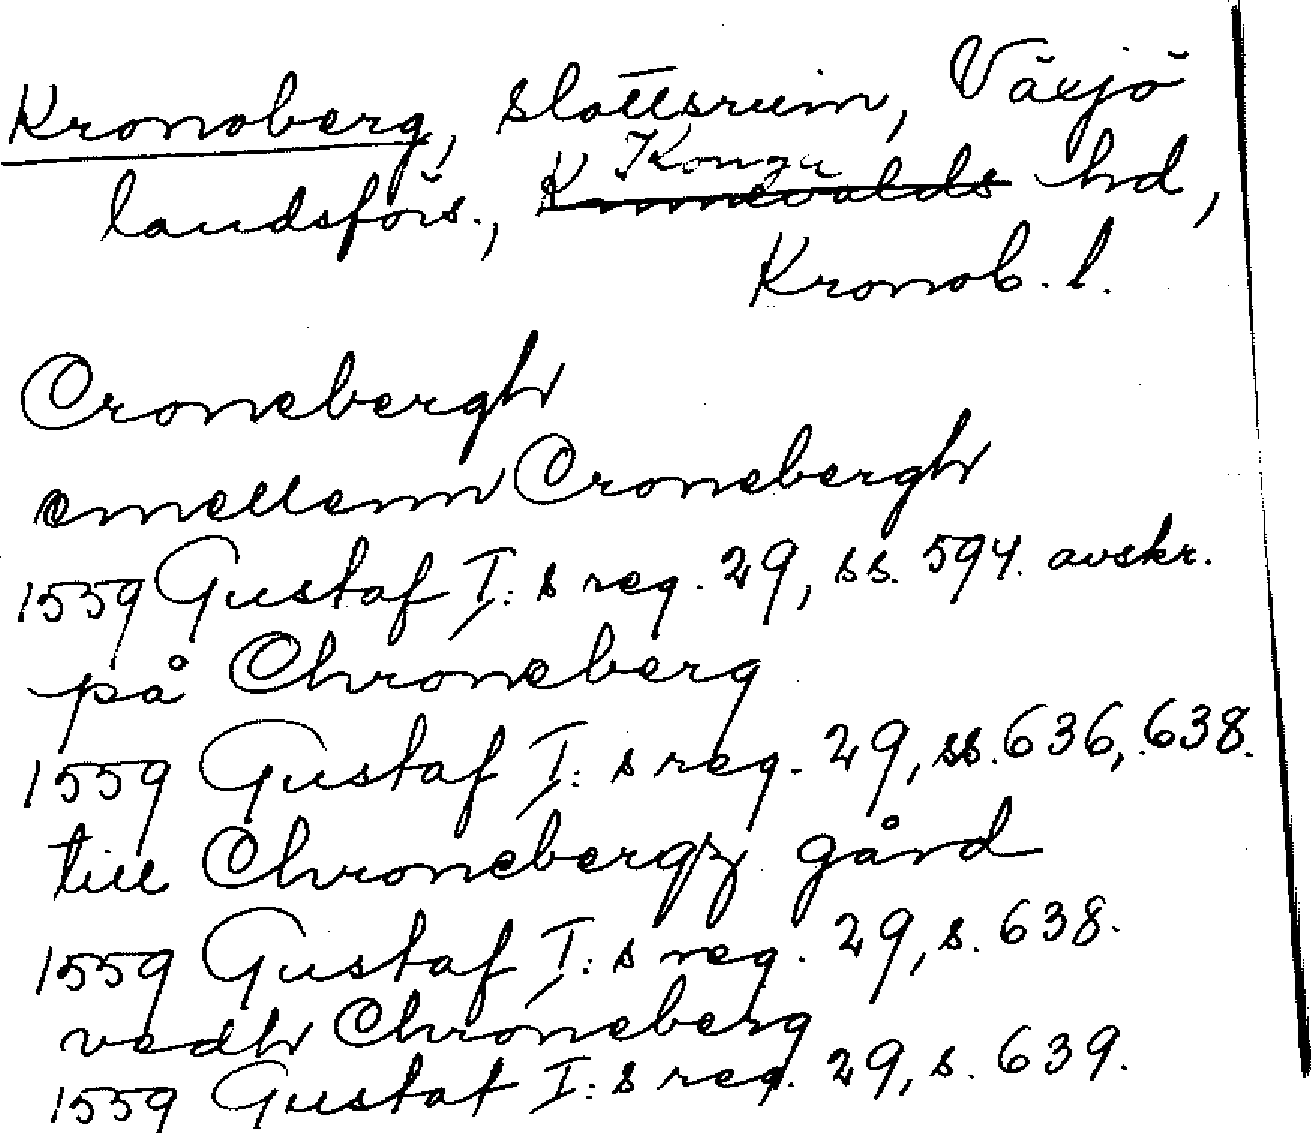 Kronoberg, slottsruin, Växjö
Konga
landsförs., Kinnevalds hd,
Kronob. l.
Cronebergh
emellenn Cronebergh
1559 Gustaf I:s reg. 29, ss. 594. avskr.
på Chroneberg
1559 Gustaf I:s reg. 29, ss. 636, 638.
till Chronebergz gård
1559 Gustaf I:s reg. 29, s. 638.
vedh Chroneberg
1559 Gustaf I:s reg. 29, s. 639.